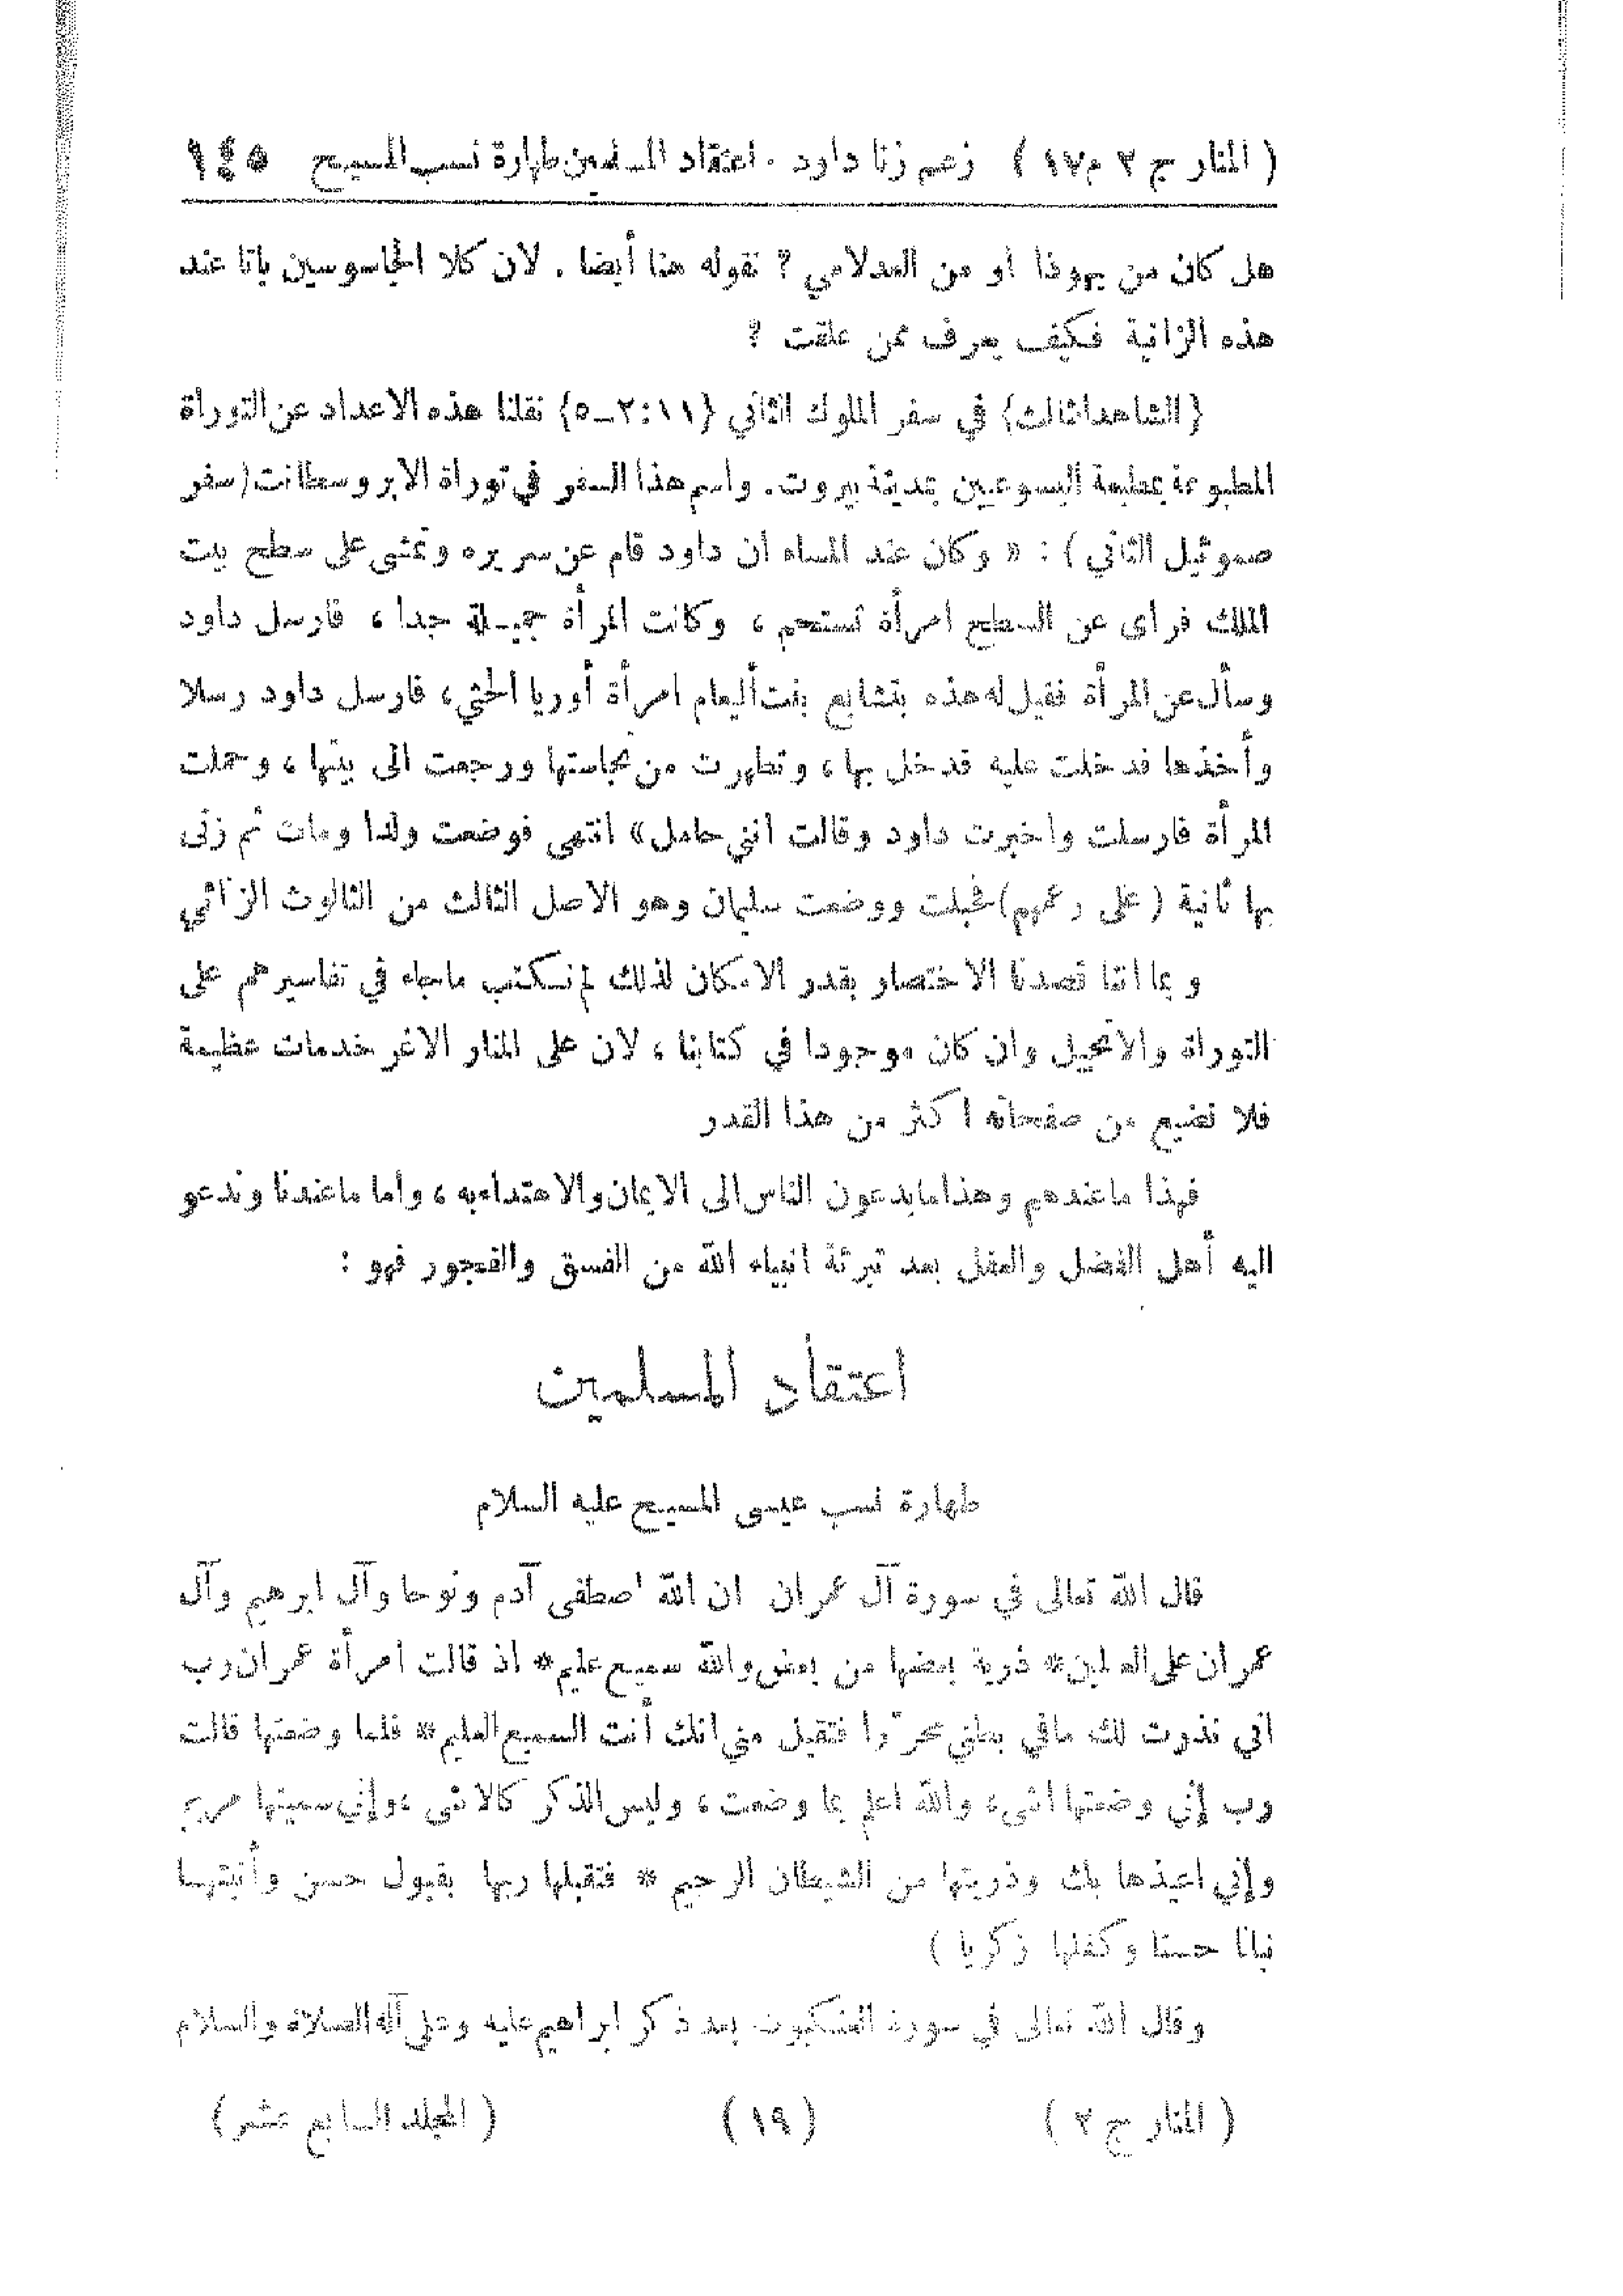 ( المنار ج ٢ م ١٧ ) زعم زنا داود . اعتقاد المسلمين طهارة نسب المسيح ١٤٥
هل كان من يهوذا أو من العدلامي ? نقوله هنا أيضا . لان كلا الجاسوسين باتا عند
هذه الزانية فكيف يعرف ممن علقت ?
(الشاهد الثالث) في سفر الملوك الثاني (١١:٢_٥) نقلنا هذه الاعداد عن التوراة
المطبوعة بمطبعة اليسوعيين بمدينة بيروت. واسم هذا السفر في توراة الابروسطانت (سفر
صموئيل الثاني ) : « وكان عند المساء ان داود قام عن سريره وتمشى على سطح بيت
الملك فرأى عن السطح امرأة تستحم ، وكانت المرأة جميـلة جدا ، فارسل داود
وسأل عن المرأة فقيل له هذه بتشابع بنت أليعام امرأة أوريا الحثي ، فارسل داود رسلا
وأخذها فدخلت عليه فدخل بها ، وتطهرت من نجاستها ورجعت الى بيتها ، وحملت
المرأة فارسلت واخبرت داود وقالت انني حامل» انتهى فوضعت ولدا ومات ثم زنى
بها ثانية (على زعمهم) فحبلت ووضعت سليمان وهو الاصل الثالث من الثالوث الزاني
وبما اننا قصدنا الاختصار بقدر الامكان لذلك لم نكتب ماجاء في تفاسيرهم على
التوراة والانجيل وان كان موجودا في كتابنا ، لان على المنار الاغر خدمات عظيمة
فلا نضيع من صفحاته اكثر من هذا القدر
فهذا ماعندهم وهذا مايدعون الناس الى الايمان والاهتداء به ، واما ماعندنا وندعو
اليه أهل الفضل والعقل بعد تبرئة انبياء الله من الفسق والفجور فهو :
اعتقاد المسلمين
طهارة نسب عيسى المسيح عليه السلام
قال الله تعالى في سورة آل عمران ان الله اصطفى آدم ونوحا وآل ابرهيم وآل
عمران على العالمين* ذرية بعضها من بعض والله سميع عليم* اذ قالت امرأة عمران رب
اني نذرت لك مافي بطني محرّرا فتقبل مني انك أنت السميع العليم* فلما وضعتها قالت
رب إني وضعتها انثى، والله اعلم بما وضعت ، وليس الذكر كالانثى ، وإني سميتها مريم
وإني اعيذها بك وذريتها من الشيطان الرجيم * فتقبلها ربها بقبول حسن وأنبتهـا
نباتا حسنا وكفلها زكريا )
وقال الله تعالى في سورة العنكبوت بعد ذكر ابراهيم عليه وعلى آله الصلاة والسلام
( المنار ج ٢ ) (١٩) ( المجلد السابع عشر)